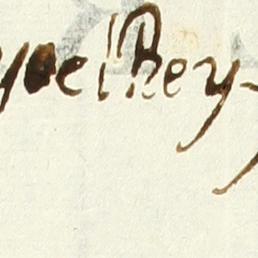 y el Rey